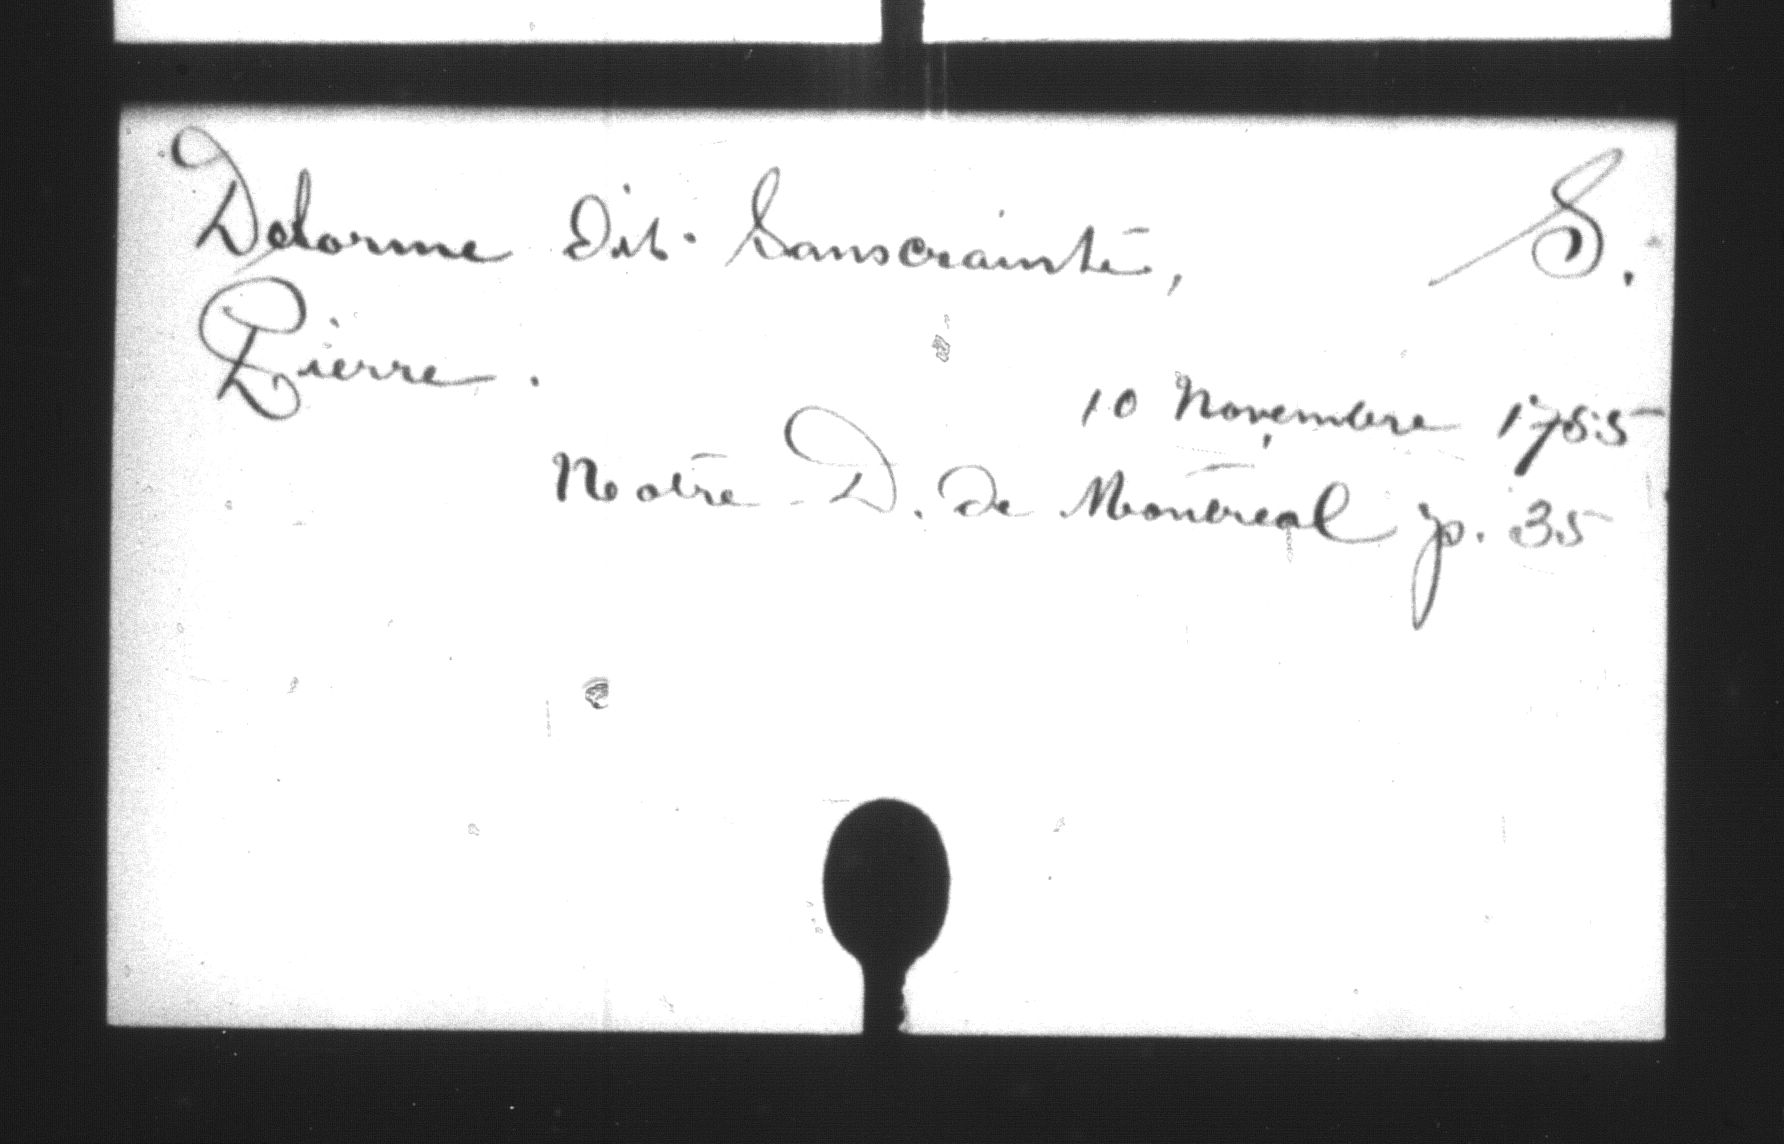 Delorme dit Sanscrainte, S.
Pierre.
10 Novembre 1755
Notre D. de Montreal p. 35